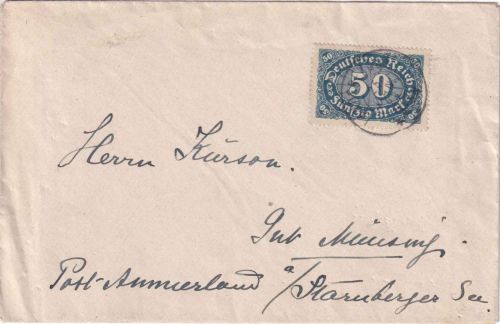 50 50
Deutsches Reich
50
Fünfzig Mark
50 50
Herrn Kürson.
Gut Münsing
Post Ammerland a/Starnberger See